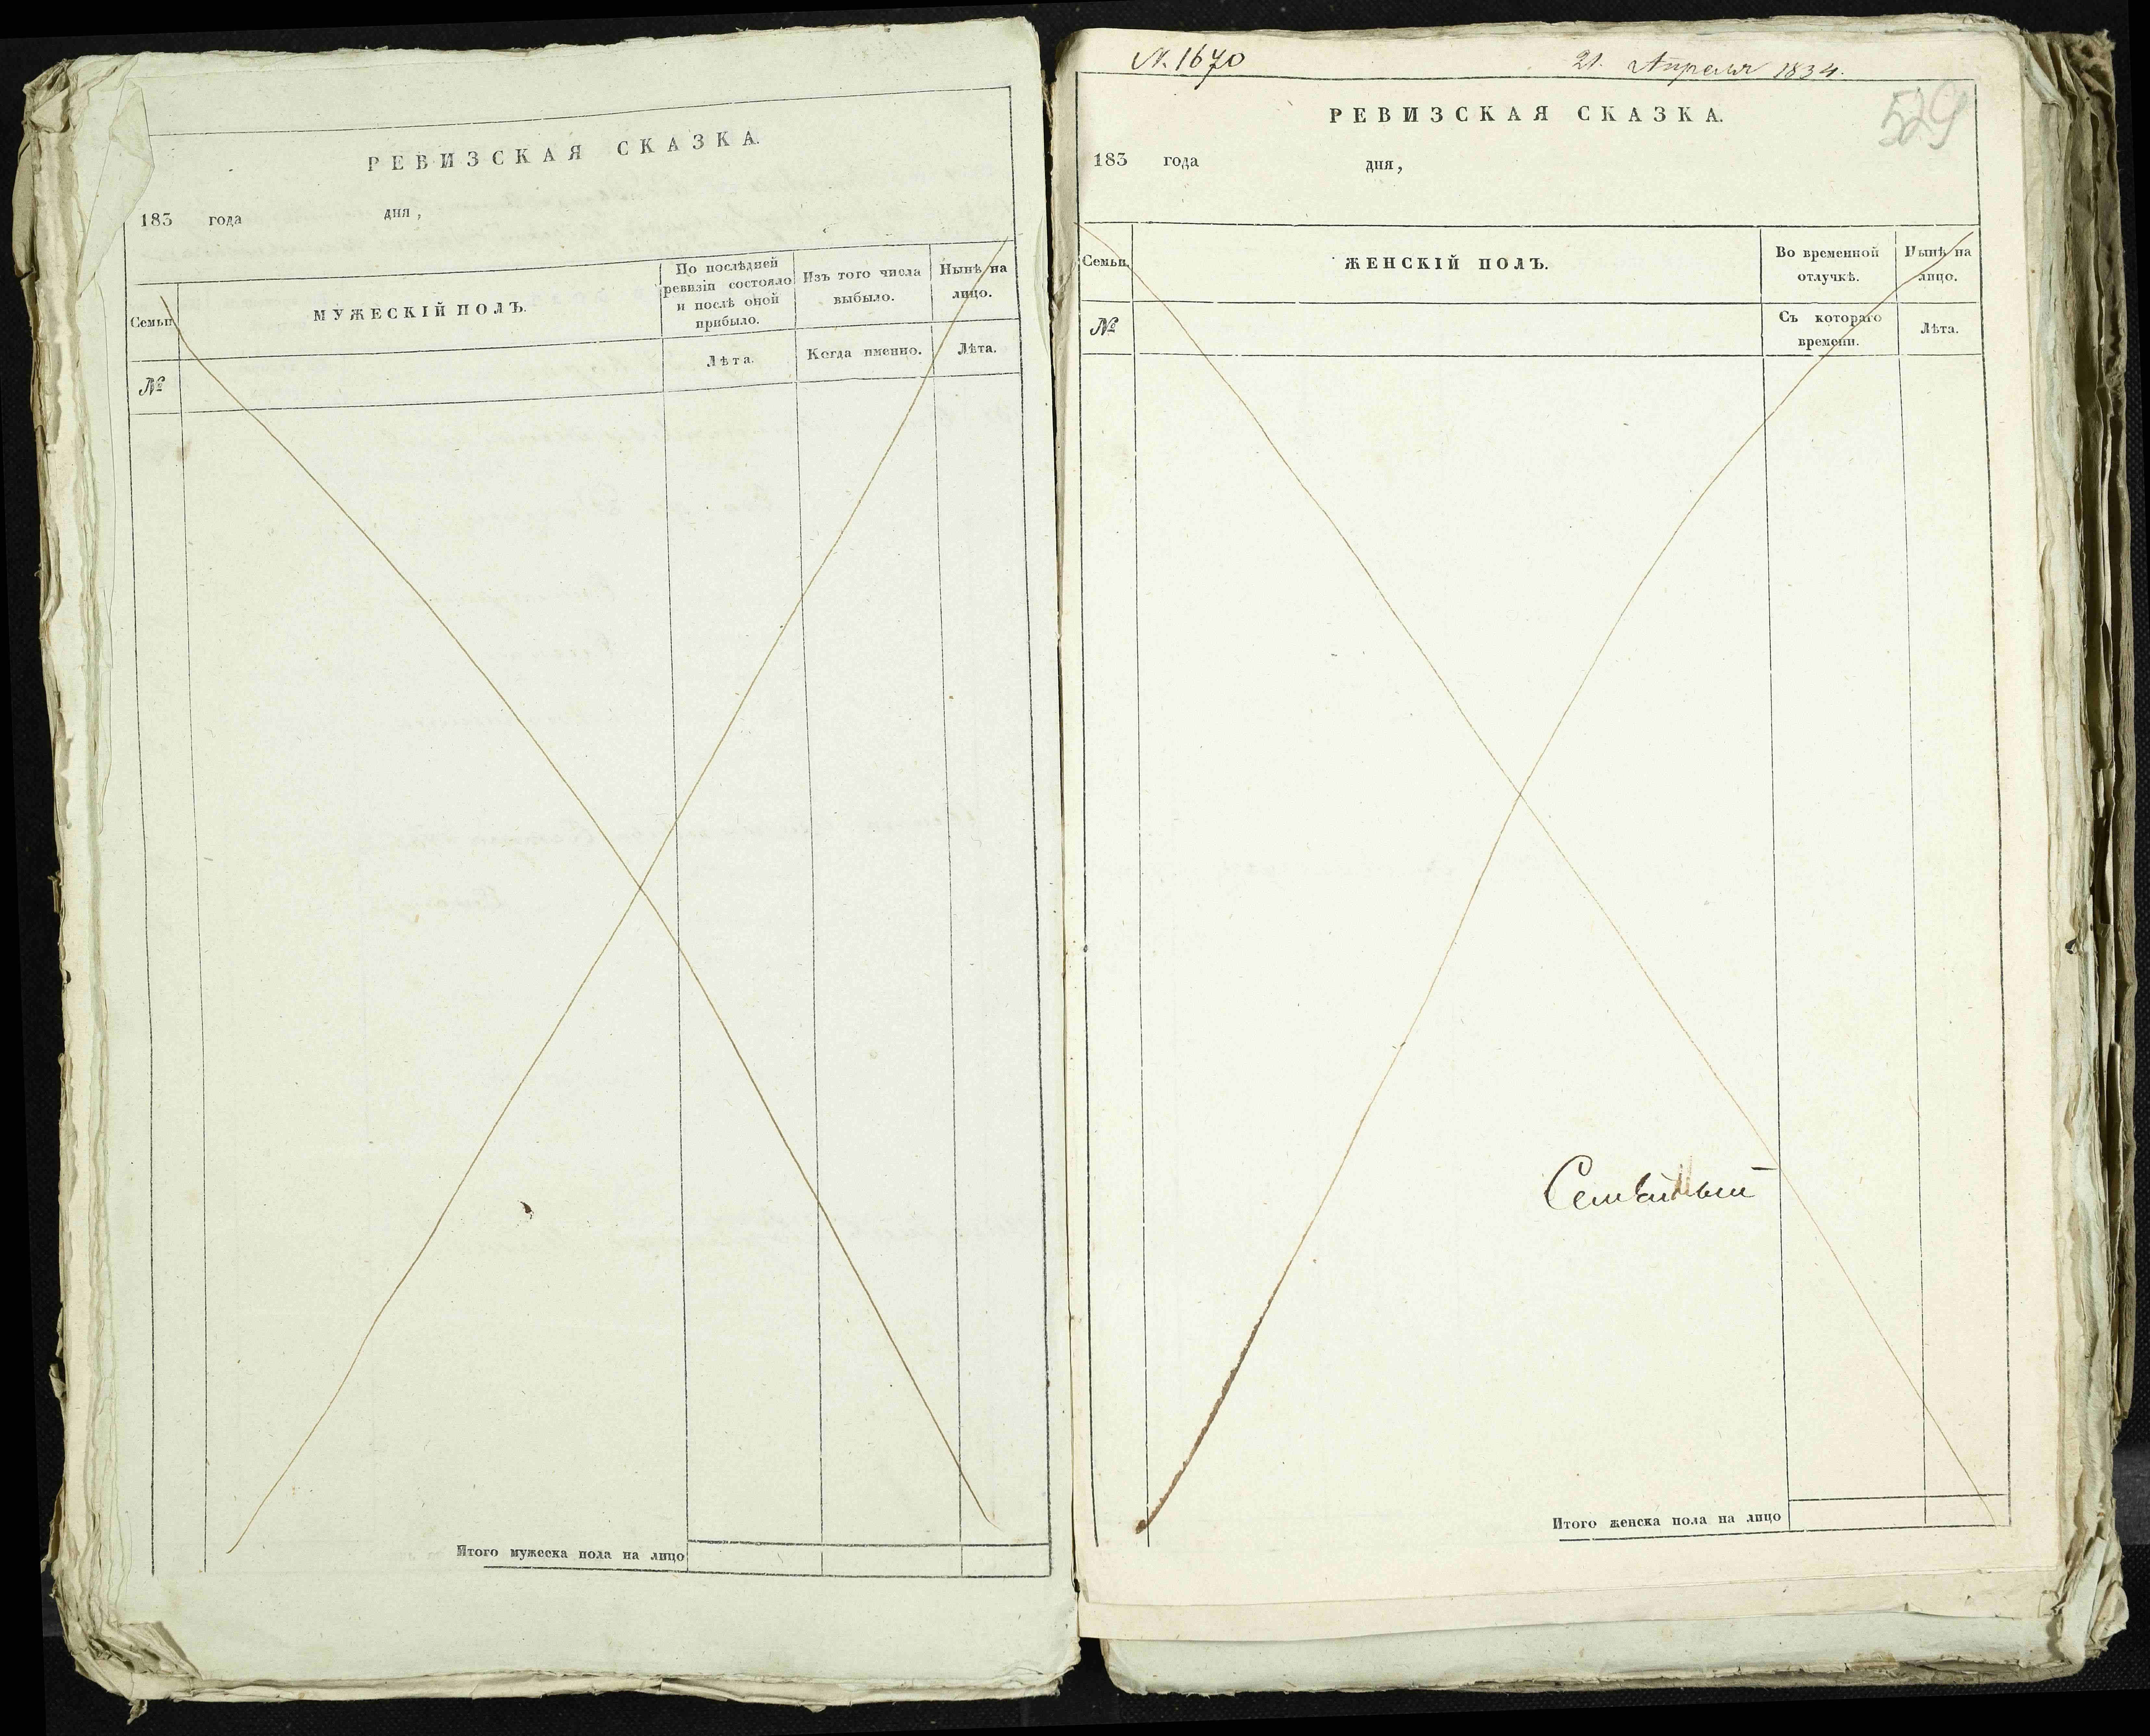 РЕВИЗСКАЯ СКАЗКА.
183 года дня,
Семьи
МУЖЕСКІЙ ПОЛЪ.
По послѣдней
ревизіи состояло
и послѣ оной
прибыло.
Изъ того числа
выбыло.
Нынѣ на
лицо.
№
Лѣта.
Когда именно.
Лѣта.
Итого мужеска пола на лицо
N. 1670
21. Апреля 1834.
529
РЕВИЗСКАЯ СКАЗКА.
183 года дня,
Семьи,
ЖЕНСКІЙ ПОЛЪ.
Во временной
отлучкѣ.
Нынѣ на
лицо.
№
Съ котораго
времени.
Лѣта.
Итого женска пола на лицо